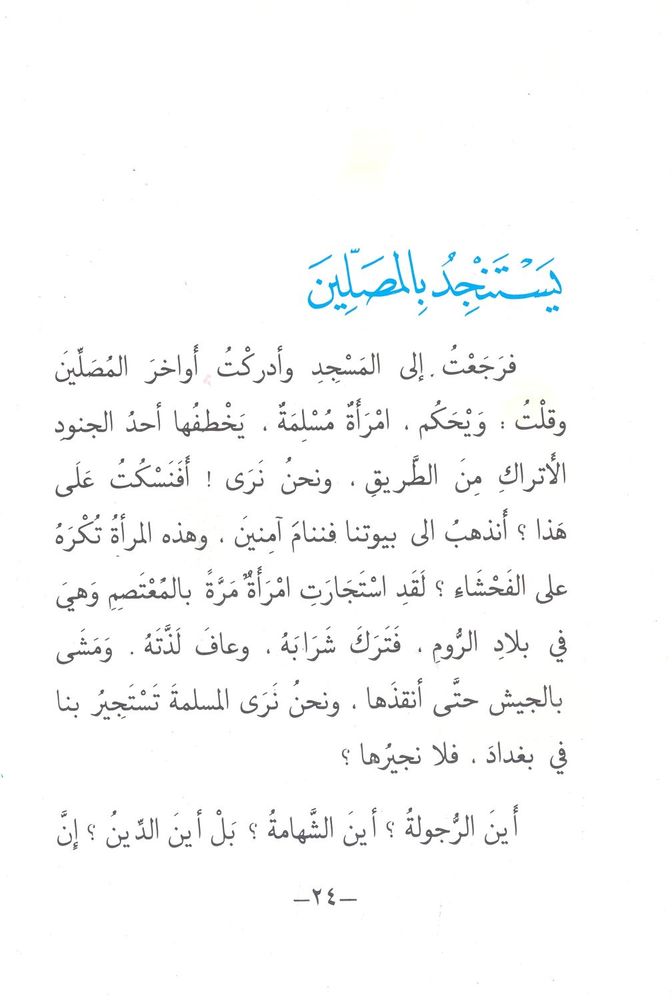 يَسْتَنْجِدُ بِالمصَلِّينَ
فرَجَعْتُ إلى المَسْجِدِ وأدركْتُ أَواخرَ المُصَلِّينَ
وقلْتُ : وَيْحَكُم ، امْرَأَةٌ مُسْلِمَةٌ ، يَخْطفُها أحدُ الجنودِ
الأَتراكِ مِنَ الطَّريقِ ، ونحنُ نَرَى ! أَفَنَسْكتُ عَلَى
هَذا ؟ أَنذهبُ الى بيوتنا فننامَ آمنينَ ، وهذه المرأةُ تُكْرَهُ
على الفَحْشَاءِ ؟ لَقَدِ اسْتَجَارَتِ امْرَأَةٌ مَرَّةً بالمُعْتَصمِ وَهيَ
في بلادِ الرُّومِ ، فَتَرَكَ شَرَابَهُ ، وعافَ لَذَّتَهُ . وَمَشَى
بالجيش حتَّى أنقذَها ، ونحنُ نَرَى المسلمةَ تَسْتَجِيرُ بنا
في بغدادَ ، فلا نجيرُها ؟
أَينَ الرُّجولةُ ؟ أينَ الشَّهامةُ ؟ بَلْ أينَ الدِّينُ ؟ إنَّ
–٢٤–